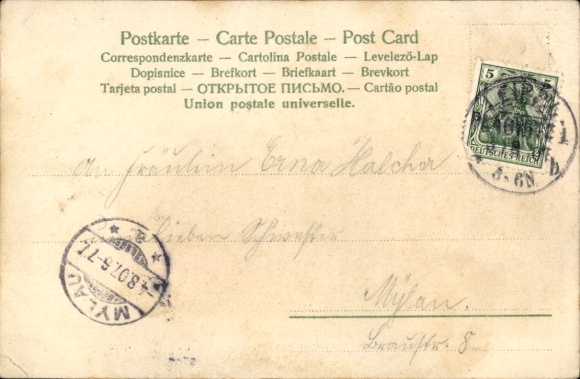 Postkarte – Carte Postale – Post Card
Correspondenzkarte – Cartolina Postale – Levelező-Lap
Dopisnice – Brefkort – Briefkaart – Brevkort
Tarjeta postal – ОТКРЫТОЕ ПИСЬМО. – Cartão postal
Union postale universelle.
5
DEUTSCHES REICH
5-6N.
b
An Fräulein Erna Halcha
Lieben Schwester
Mylau.
Braustr. 8
MYLAU
-4.8.07.6-7